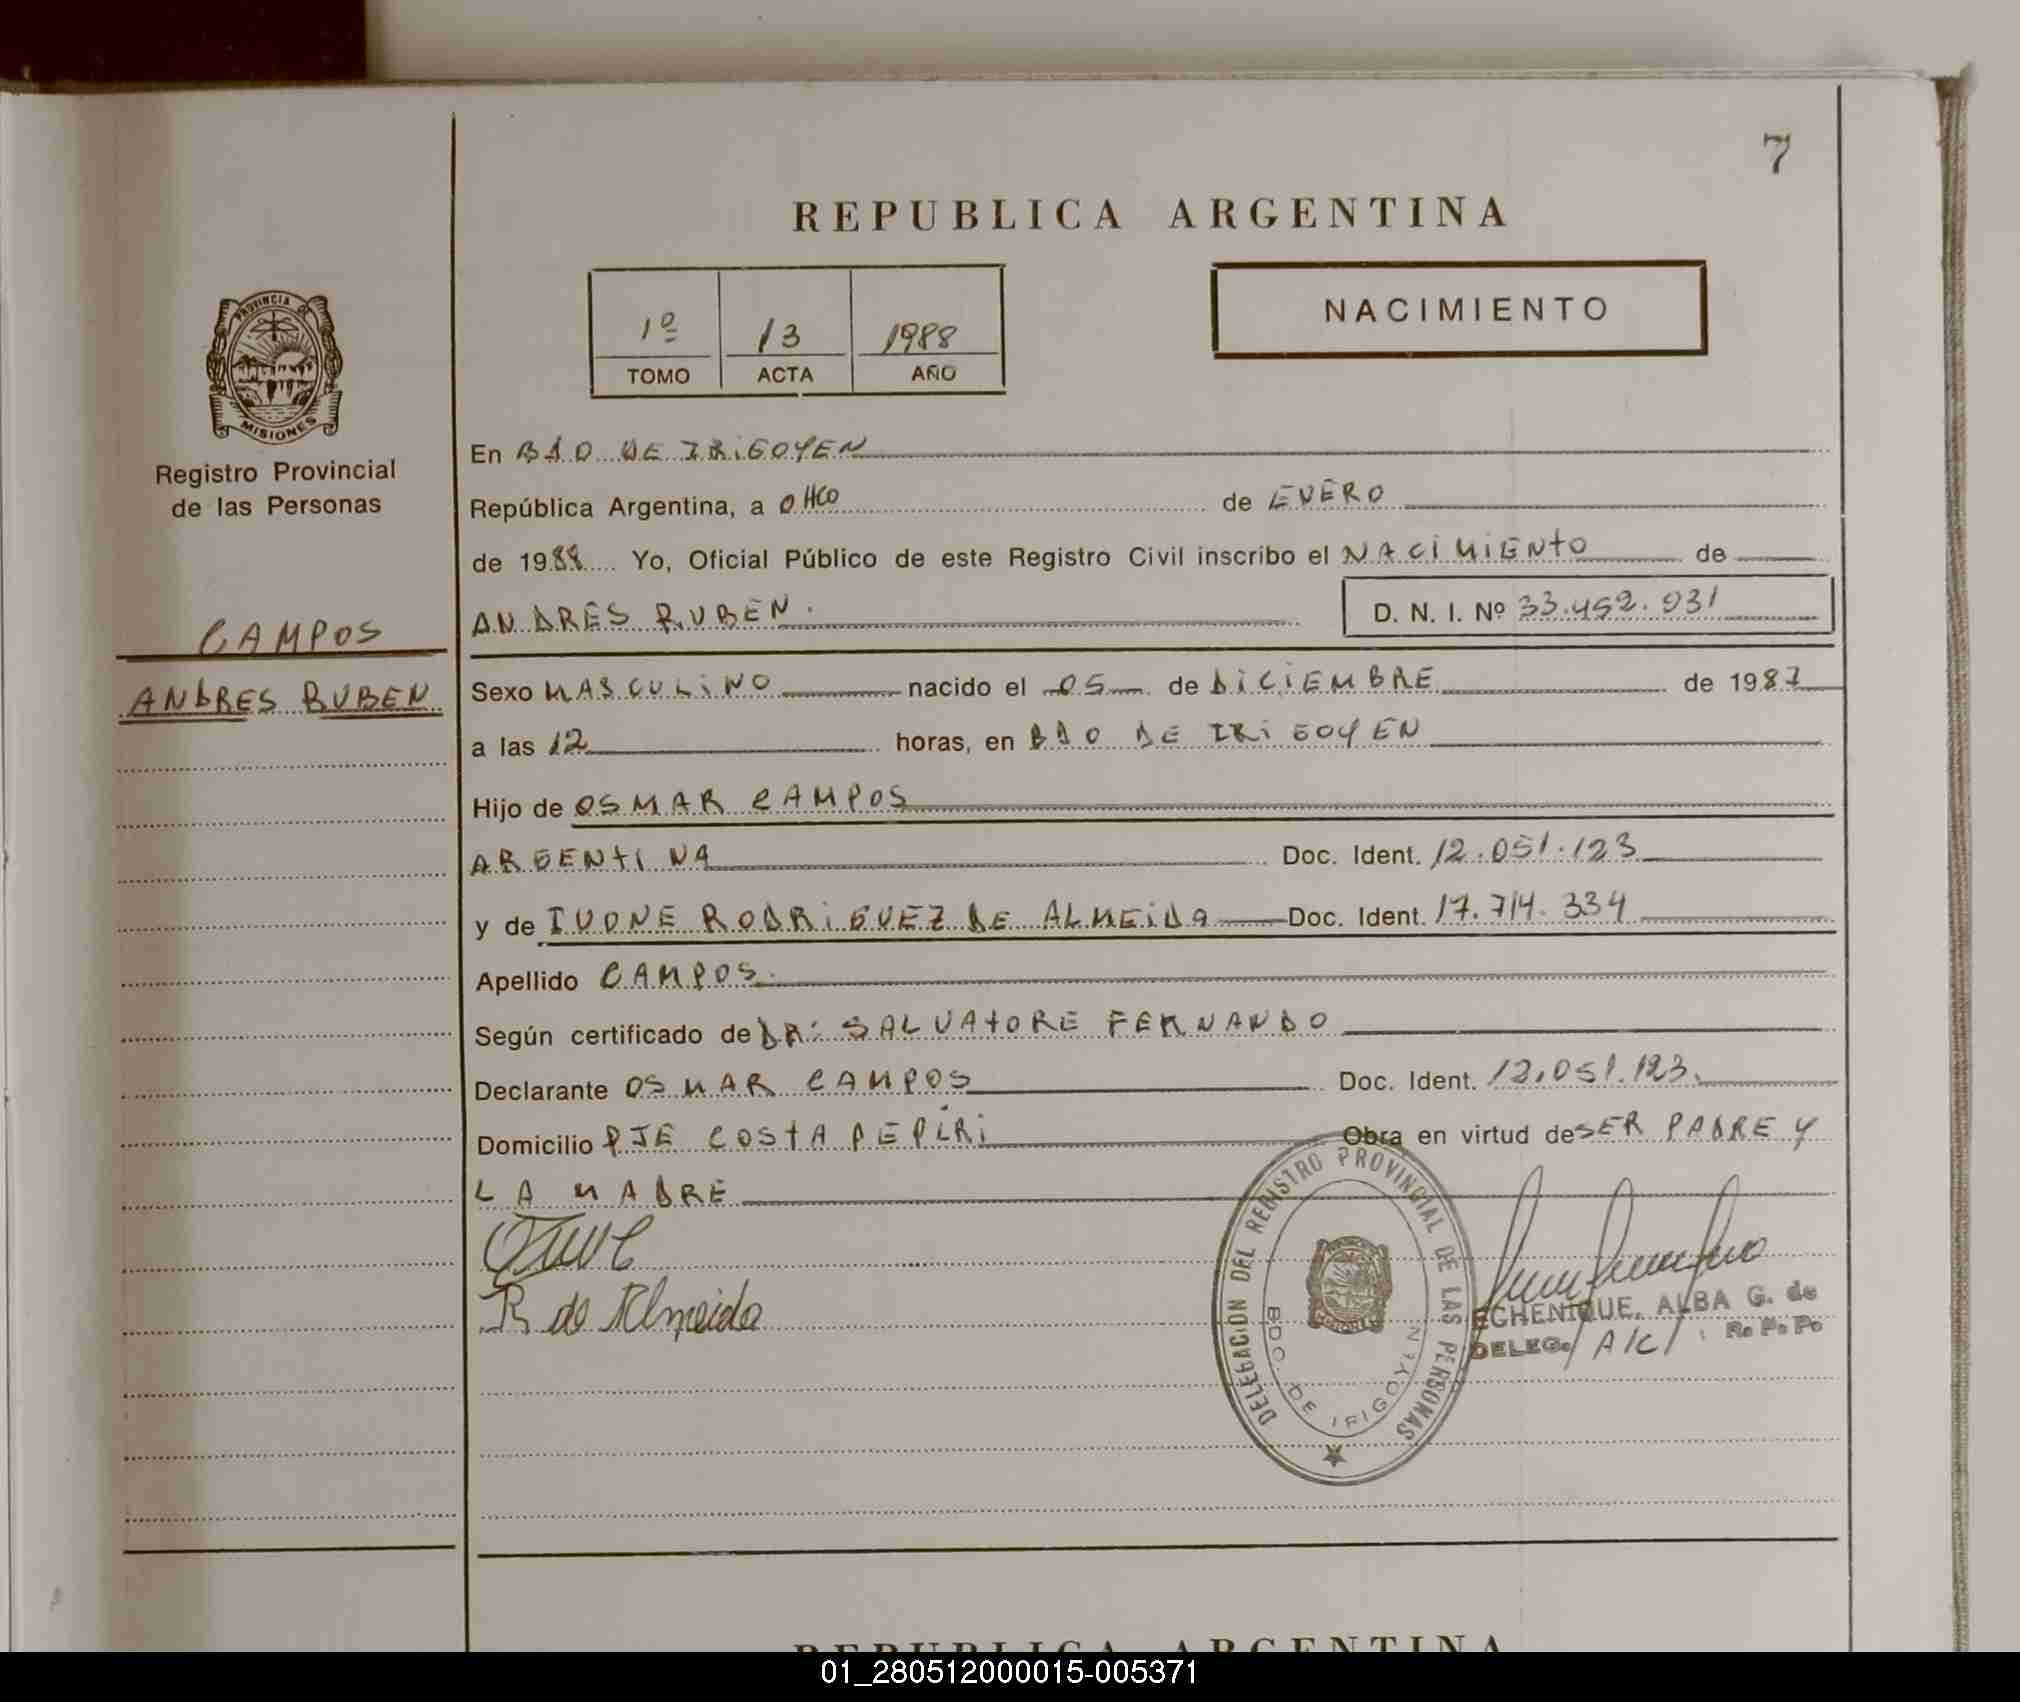 7
REPUBLICA ARGENTINA
1º 13 1988
TOMO ACTA AÑO
NACIMIENTO
PROVINCIA DE
MISIONES
Registro Provincial
de las Personas
CAMPOS
ANDRES RUBEN
En BDO DE IRIGOYEN
República Argentina, a OHCO de ENERO
de 1988 Yo, Oficial Público de este Registro Civil inscribo el NACIMIENTO de
ANDRES RUBEN. D. N. I. Nº 33.452.931
Sexo MASCULINO nacido el 05 de DICIEMBRE de 1987
a las 12 horas, en BDO DE IRIGOYEN
Hijo de OSMAR CAMPOS
ARGENTINA Doc. Ident. 12.051.123
y de IVONE RODRIGUEZ DE ALMEIDA Doc. Ident. 17.714.334
Apellido CAMPOS.
Según certificado de DR: SALVATORE FERNANDO
Declarante OSMAR CAMPOS Doc. Ident. 12.051.123.
Domicilio PJE COSTA PEPIRI Obra en virtud de SER PADRE Y
LA MADRE
R de Almeida
DELEGACION DEL REGISTRO PROVINCIAL DE LAS PERSONAS
BDO. DE IRIGOYEN
ECHENIQUE, ALBA G. de
DELEG. A/C/ R. P. P.
REPUBLICA ARGENTINA
01_280512000015-005371